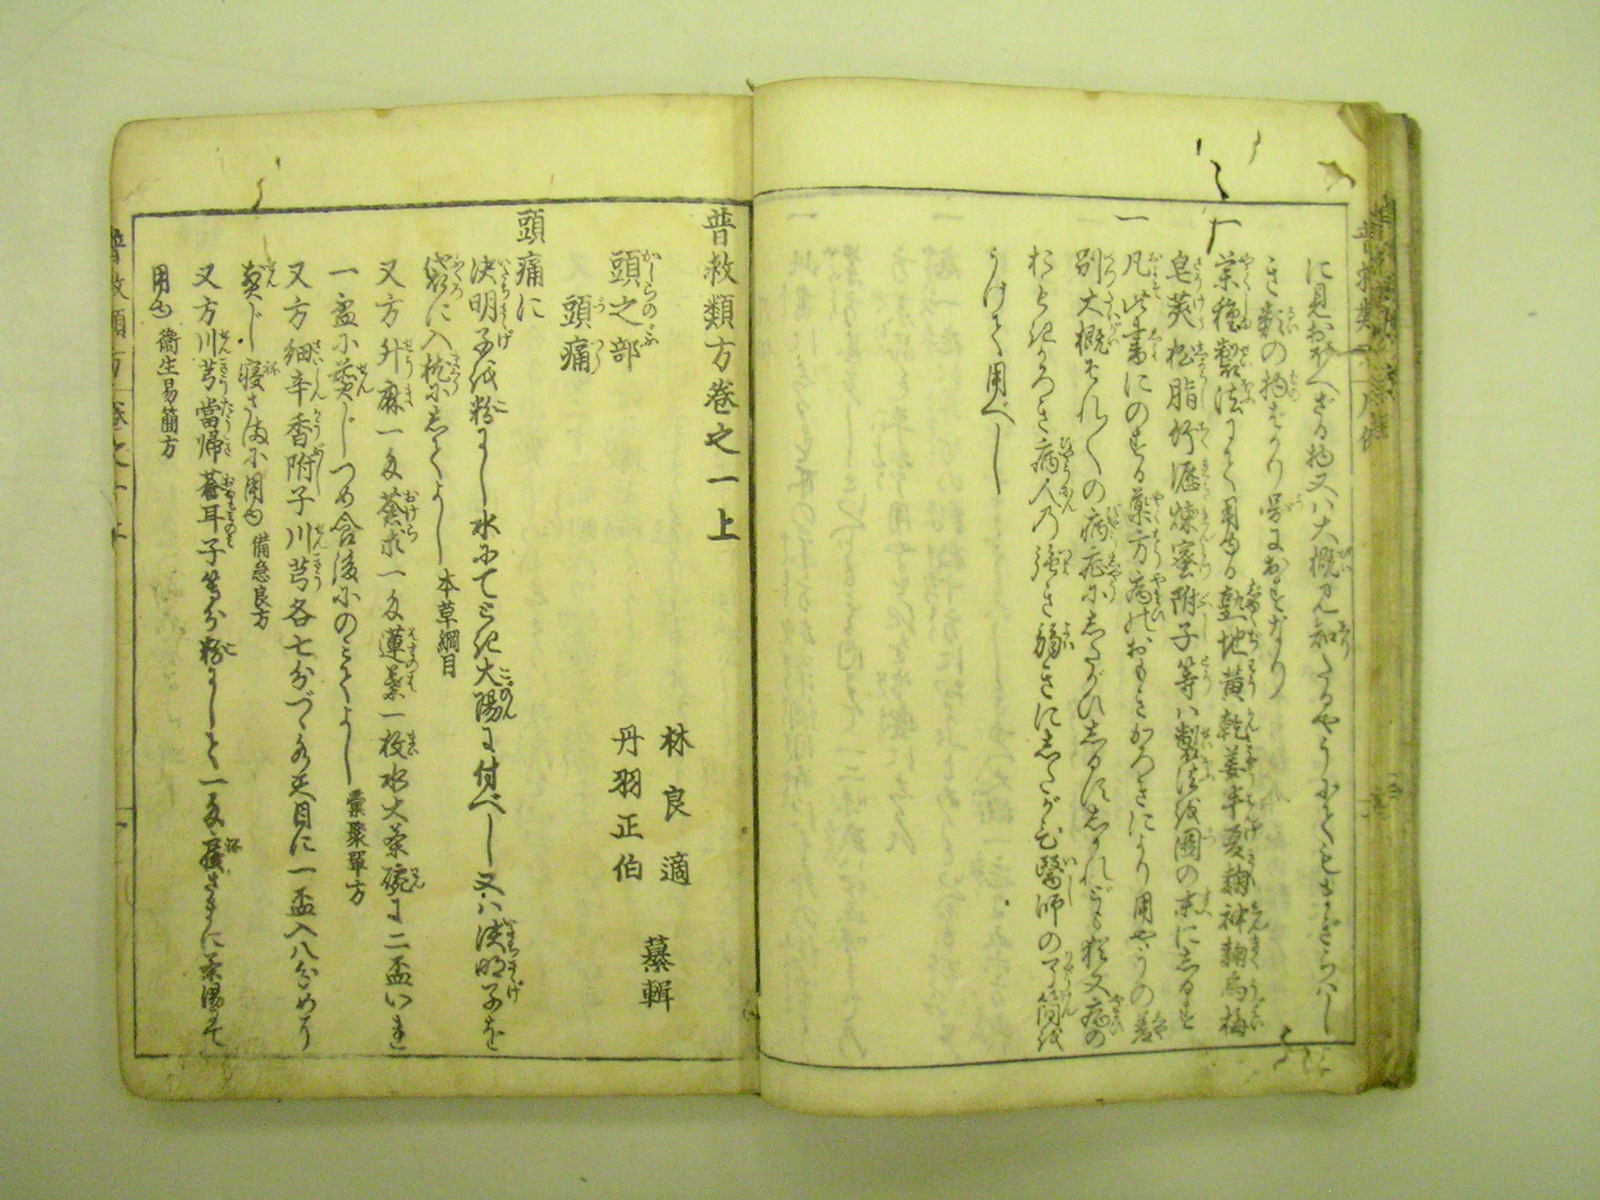 に見およべざる物又ハ大概見知たるやうにてもさだらハし
き類の物ばかり見るにおよずなり
一
薬種製法して用る熟地黄乾姜半夏麹神麹烏梅
皂莢松脂竹瀝煉蜜附子等ハ製法を圖の末にしるす
一
凡此書にのする薬方病のおもきかろきにより用やうの差
別大概それ〱の病症にしたがひしるすしかれども猶又病の
おもきかろき病人の強き弱きにしたがひ醫師の了簡を
うけて用べし
普救類方巻之一上
林良適
丹羽正伯
纂輯
頭之部
頭痛
頭痛に
決明子を粉にし水にてとき大陽に付べし又ハ決明子を
ふくろに入枕にしてよし 本草綱目
又方升麻一匁蒼朮一匁蓮葉一枚水大茶碗に二盃いれ
一盃に煎じつめ食後にのみてよし 彙聚單方
又方細辛香附子川芎各七分づゝ水天目に一盃入八分めに
煎じ寝さまに用ゆ 備急良方
又方川芎當帰蒼耳子等分粉にして一匁寝さまに茶湯にて
用ゆ 衛生易簡方
普救類方 巻之一上